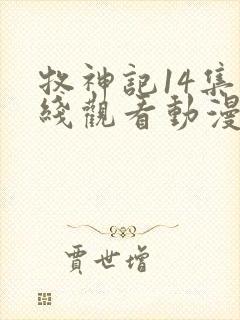 牧神記14集
綫觀看動漫
賈世增